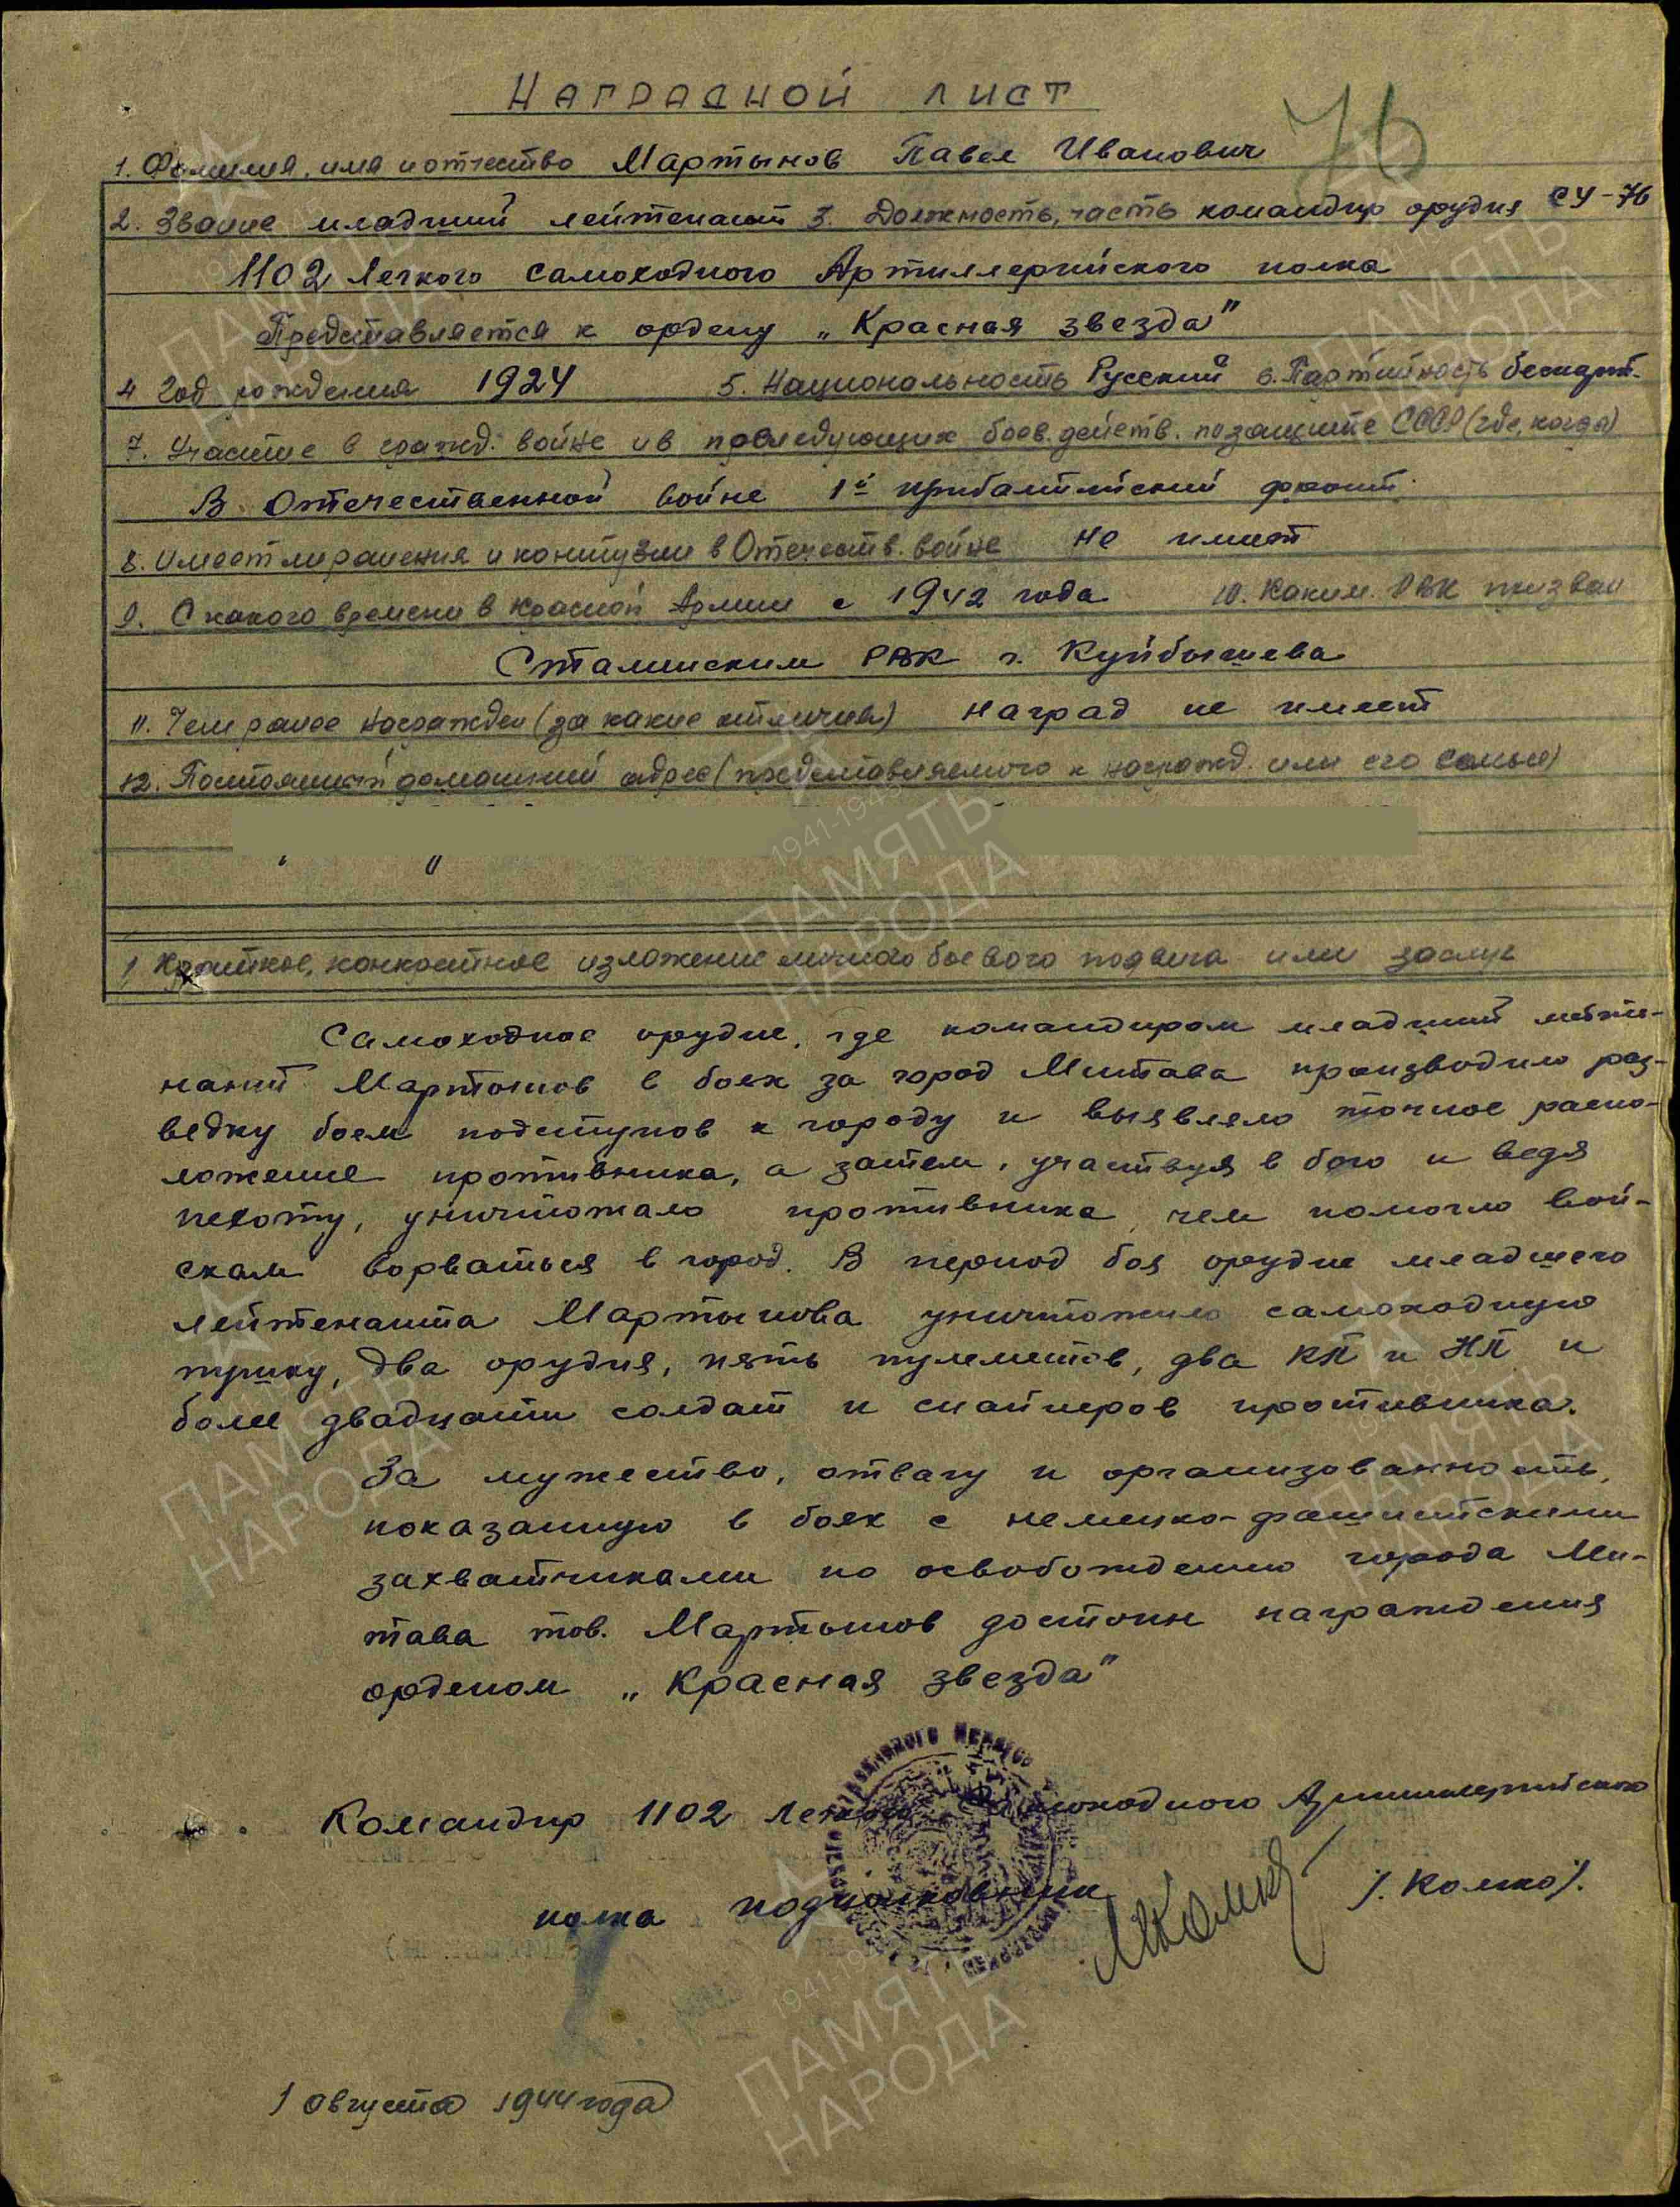 Наградной лист
76
1. Фамилия, имя и отчество Мартынов Павел Иванович
2. Звание младший лейтенант 3. Должность, часть командир орудия СУ-76
1102 Легкого Самоходного Артиллерийского полка
Представляется к ордену „Красная звезда"
4 Год рождения 1924 5. Национальность Русский 6. Партийность беспарт.
7. Участие в гражд. войне и в последующих боев. действ. по защите СССР (где, когда)
В Отечественной войне 1й прибалтийский фронт.
8. Имеет ли ранения и контузии в Отечеств. войне не имеет
9. С какого времени в Красной Армии с 1942 года 10. Каким РВК призван
Сталинским РВК г. Куйбышева
11. Чем ранее награжден (за какие отличия) наград не имеет
12. Постоянный домашний адрес (представляемого к награжд. или его семьи)
1 Краткое, конкретное изложение личного боевого подвига или заслуг
Самоходное орудие, где командиром младший лейте-
нант Мартынов в боях за город Митава производило раз-
ведку боем подступов к городу и выявляло точное распо-
ложение противника, а затем, участвуя в бою и ведя
пехоту, уничтожало противника, чем помогло вой-
скам ворваться в город. В период боя орудие младшего
лейтенанта Мартынова уничтожило самоходную
пушку, два орудия, пять пулеметов, два КП и НП и
более двадцати солдат и снайперов противника.
За мужество, отвагу и организованность,
показанную в боях с немецко-фашистскими
захватчиками по освобождению города Ми-
тава тов. Мартынов достоин награждения
орденом „Красная звезда"
Командир 1102 Легкого Самоходного Артиллерийского
полка подполковник /. Колко/.
1 августа 1944 года
1941-1945
ПАМЯТЬ
НАРОДА